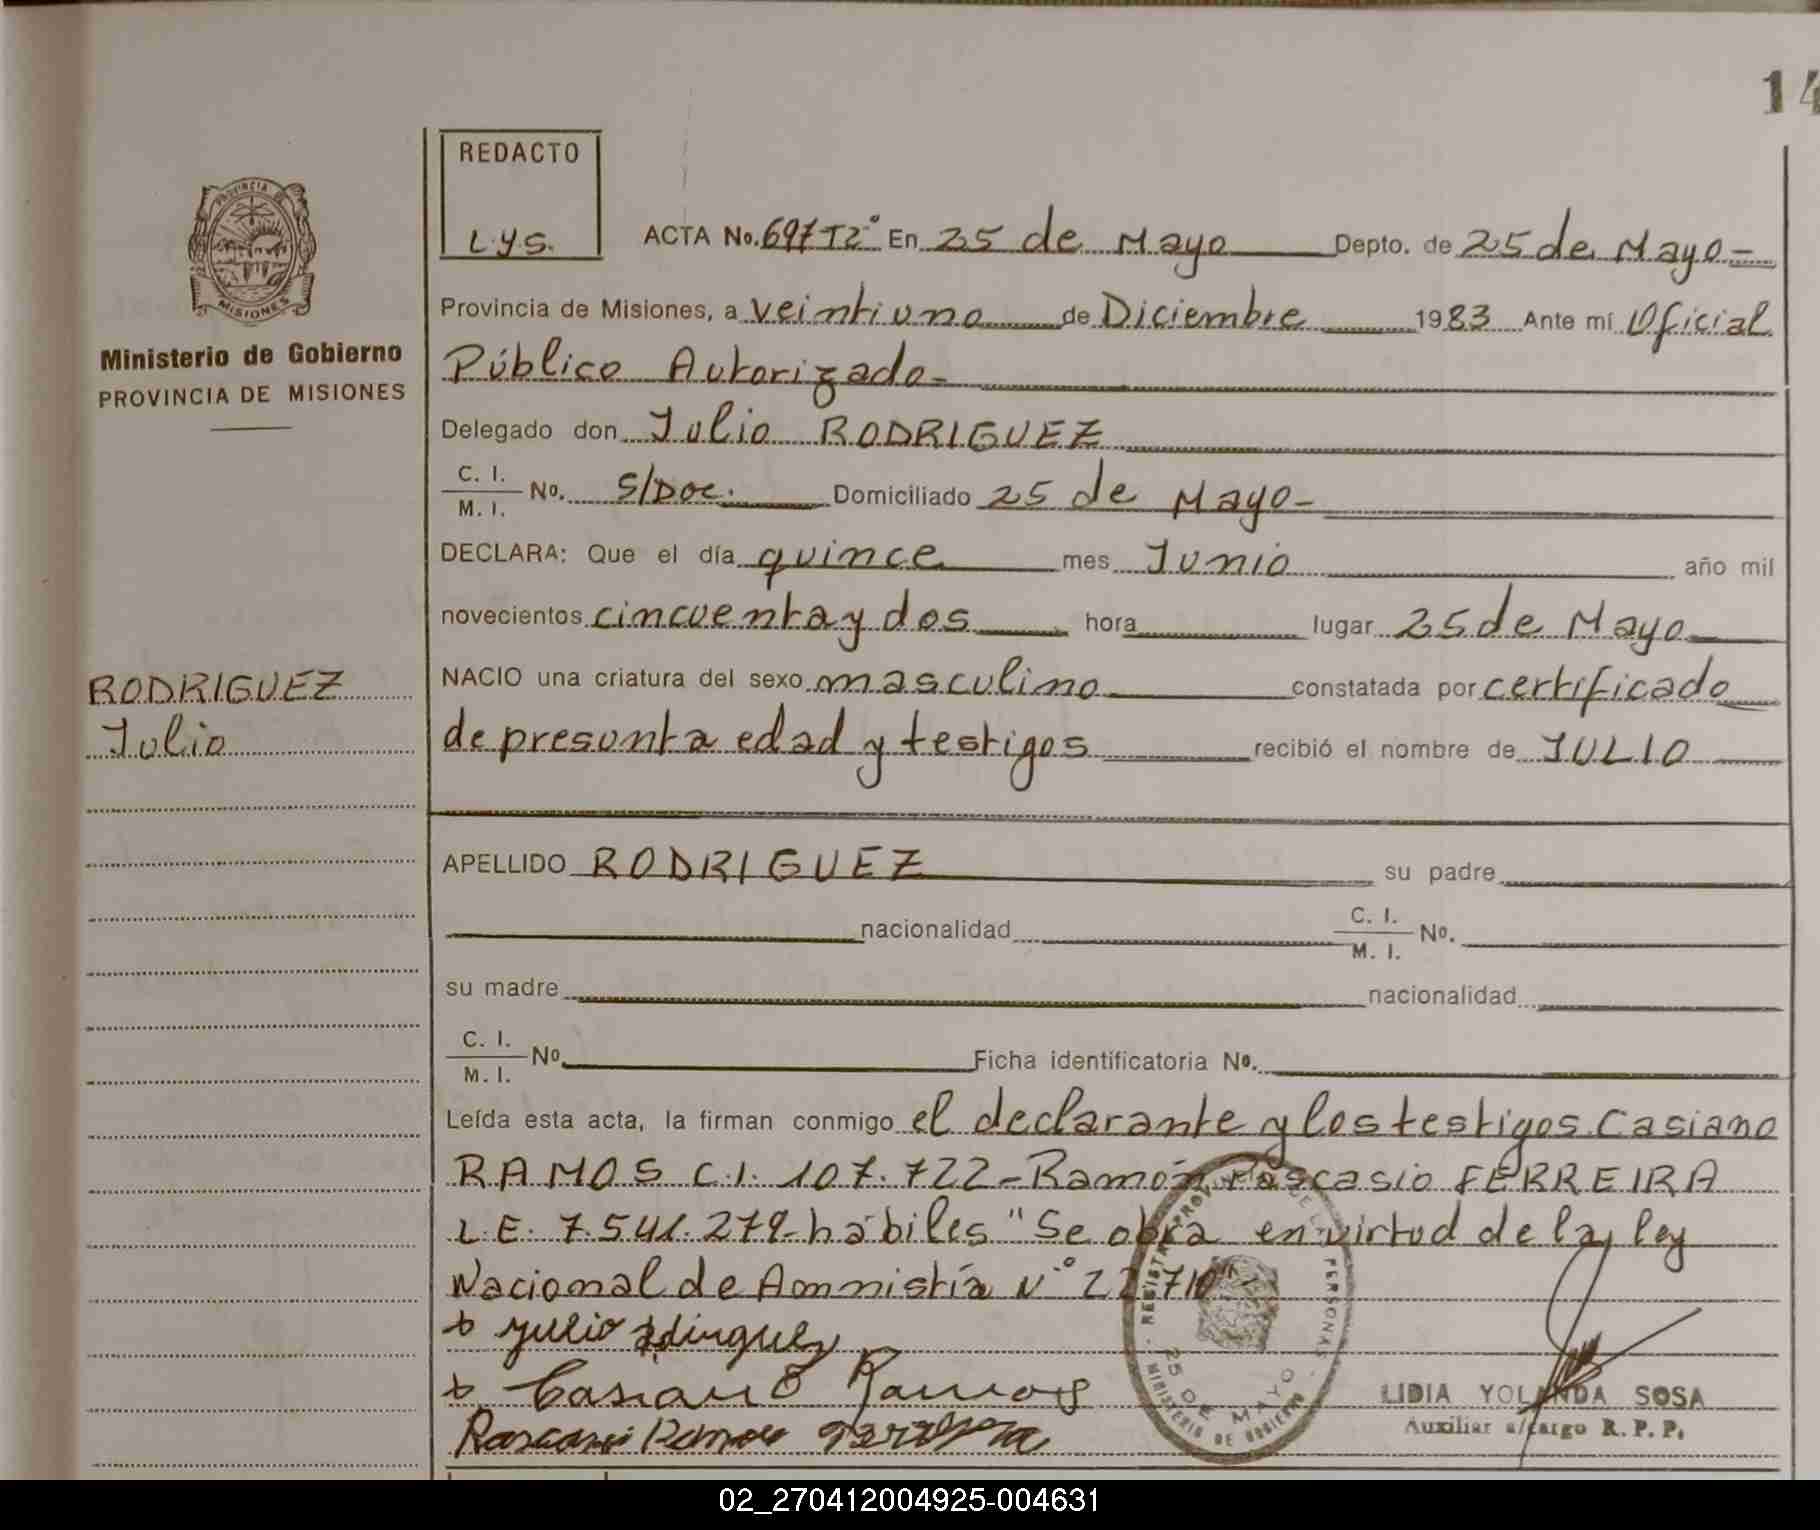 14
REDACTO
L.Y.S.
ACTA No. 697 T2° En 25 de Mayo Depto. de 25 de Mayo-
PROVINCIA DE
MISIONES
Ministerio de Gobierno
PROVINCIA DE MISIONES
Provincia de Misiones, a veintiuno de Diciembre 1983 Ante mí Oficial
Público Autorizado-
Delegado don Julio RODRIGUEZ
C. I.
M. I. No. S/Doc. Domiciliado 25 de Mayo-
DECLARA: Que el día quince mes Junio año mil
novecientos cincuenta y dos hora lugar 25 de Mayo
NACIO una criatura del sexo masculino constatada por certificado
de presunta edad y testigos recibió el nombre de JULIO
RODRIGUEZ
Julio
APELLIDO RODRIGUEZ su padre
nacionalidad C. I.
M. I. No.
su madre nacionalidad
C. I.
M. I. No. Ficha identificatoria No.
Leída esta acta, la firman conmigo el declarante y los testigos Casiano
RAMOS C.I. 107.722-Ramón Pascasio FERREIRA
L.E. 7.541.279-hábiles "Se obra en virtud de la ley
Nacional de Amnistía N° 22.710"
Julio
Casiano Ramos
REGISTRO PROVINCIAL DE LAS PERSONAS
25 DE MAYO
MINISTERIO DE GOBIERNO
LIDIA YOLANDA SOSA
Auxiliar a/cargo R. P. P.
02_270412004925-004631